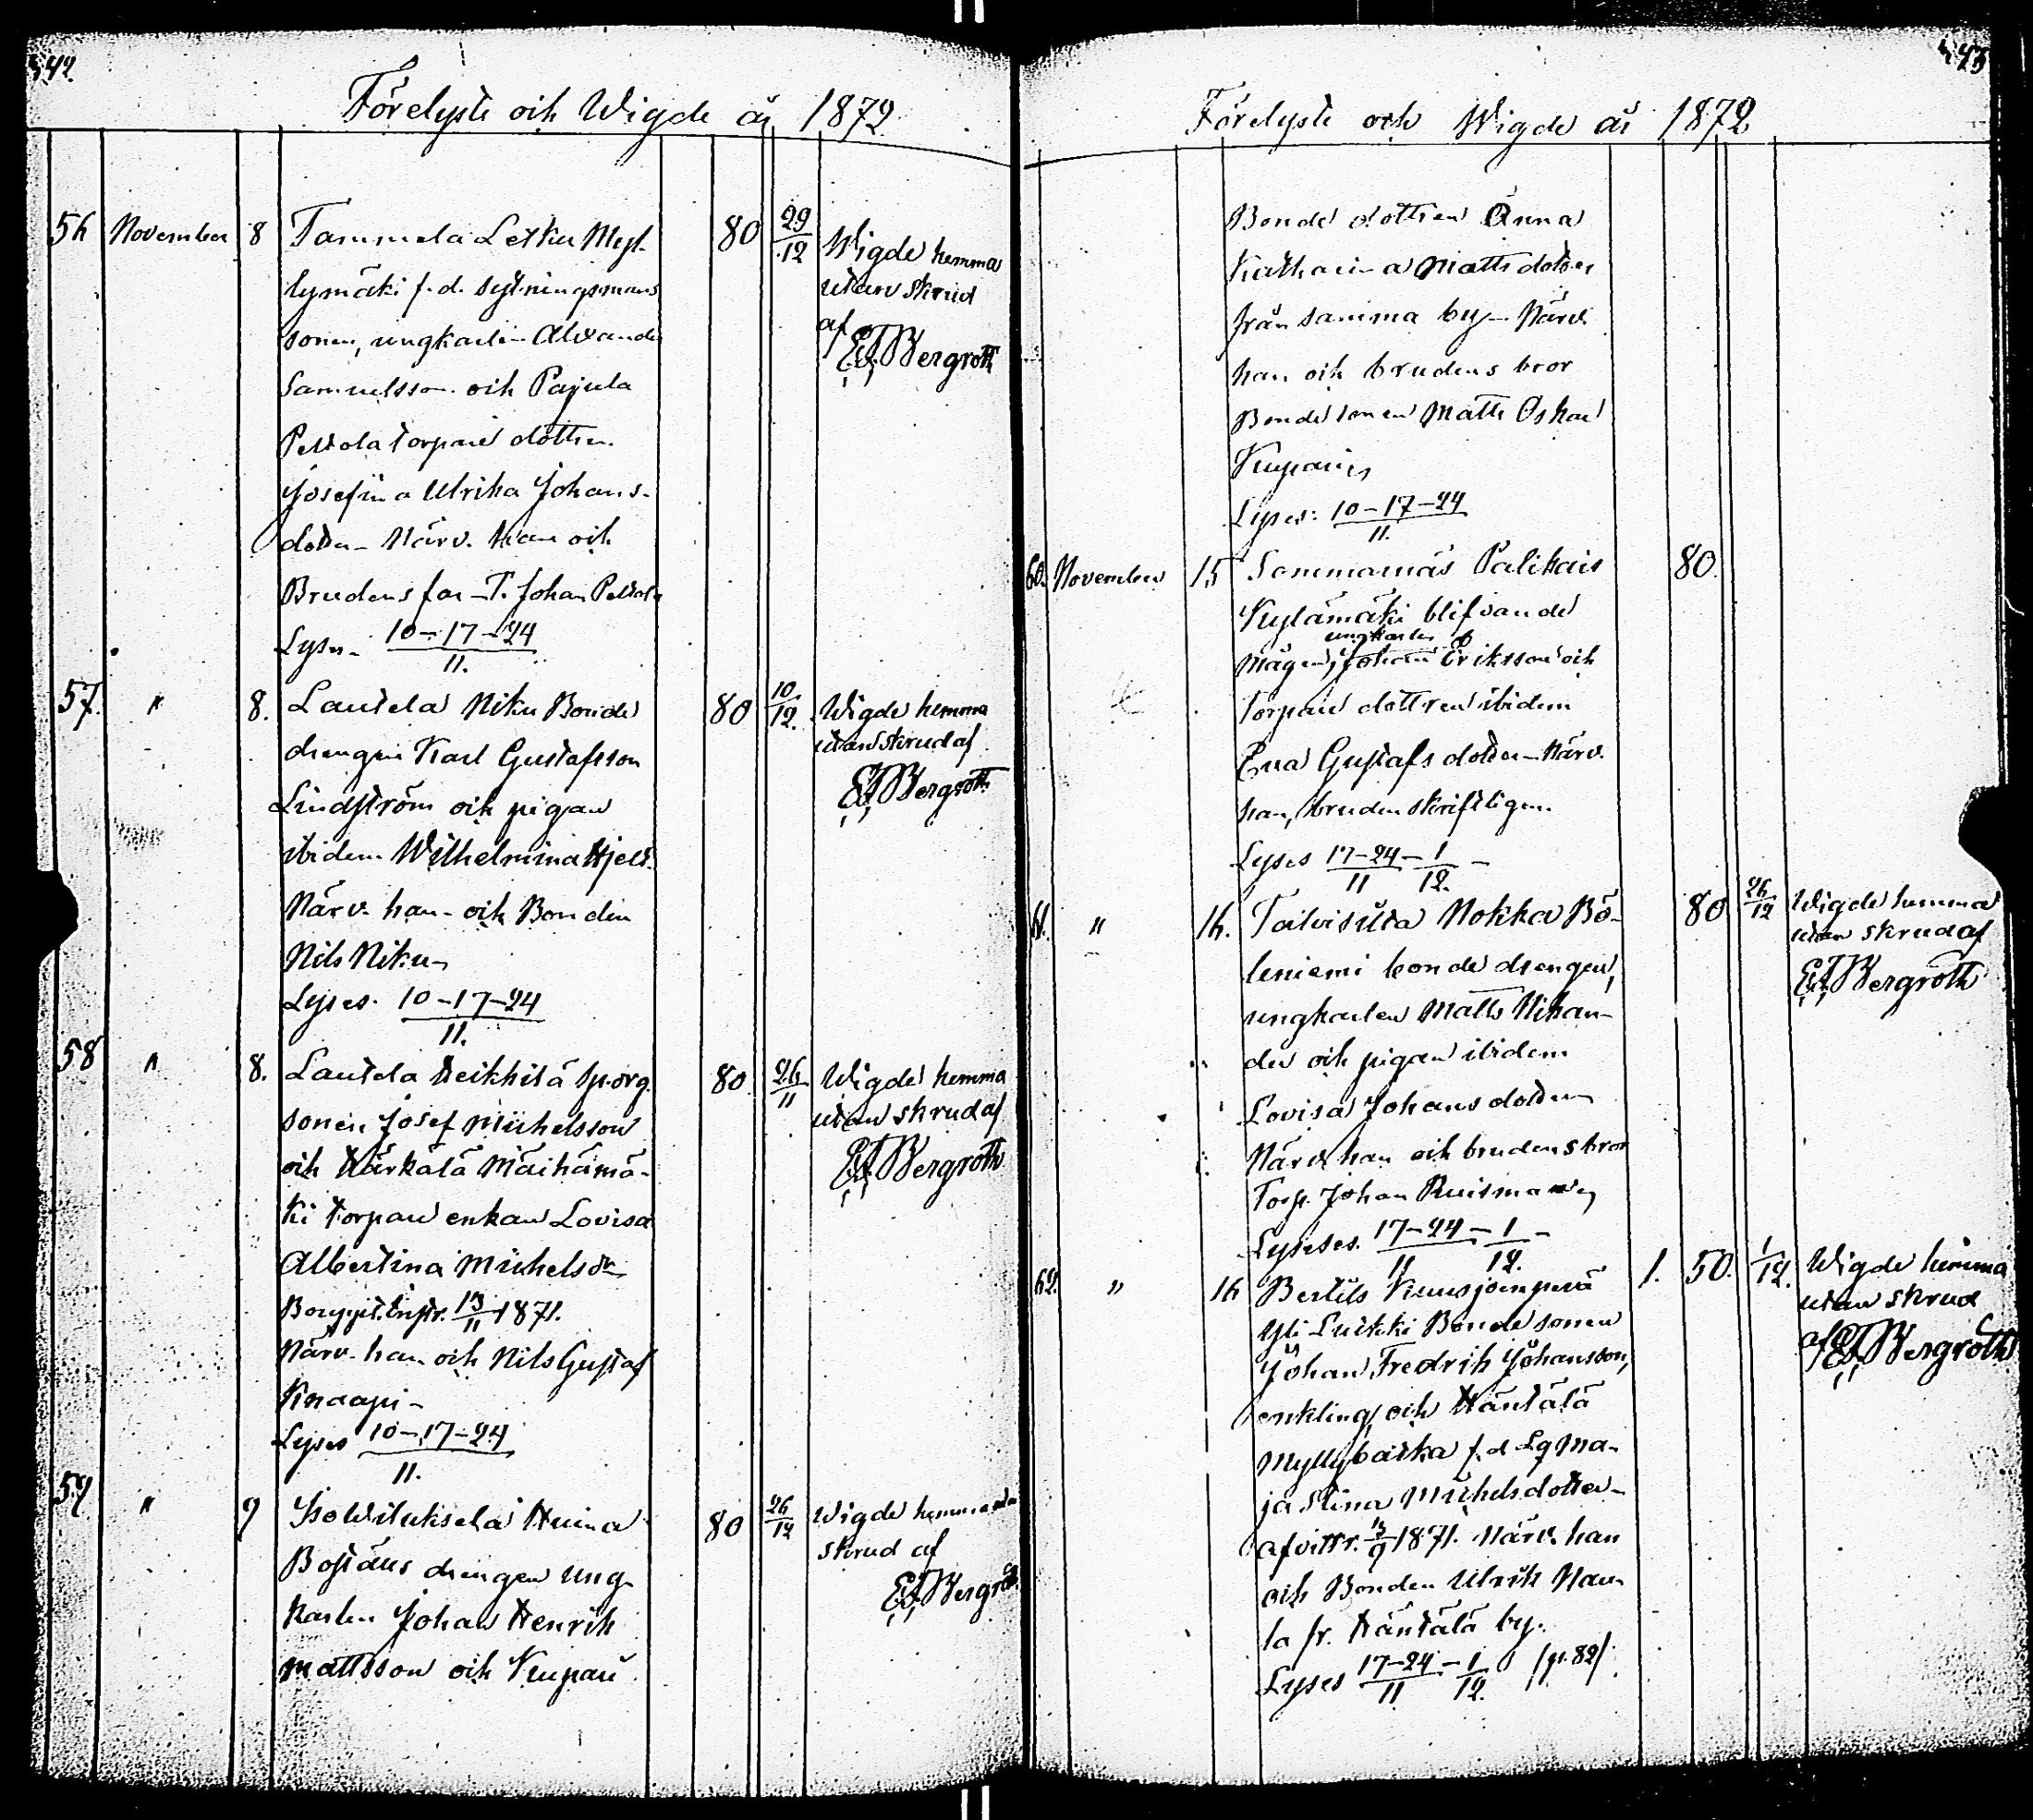 442
Förelyste och Wigde år 1872
56 November 8 Tammela Letku Myl-
lymäki f.d. sytningsmans
sonen, ungkarlen Alexander
Samuelsson och Pajula
Peltola torpare dottren
Josefina Ulrika Johans-
dotter - Närv. han och
Brudens far - T. Johan Peltola
Lyses - 10-17-24
11.
80 29/12 Wigde hemma
utan skrud
af
EJBergroth
57. " 8. Lautela Niku Bonde
drengen Karl Gustafsson
Lindström och pigan
ibidem Wilhelmina Hjelt.
Närv. han - och Bonden
Nils Niku
Lyses. 10-17-24
11.
80 10/12. Wigde hemma
utan skrud af
EJBergroth
58 " 8. Lautela Heikkilä sp.org.
sonen Josef Michelsson
och Härkälä Mäihämä-
ki torpare enkan Lovisa
Albertina Michelsdr
Bouppt. instr. 13/11 1871.
Närv. han och Nils Gustaf
Knaapi -
Lyses 10-17-24
11.
80 26/11 Wigde hemma
utan skrud af
EJBergroth
59 " 9 Iso Wiluksela Huina
drengen ung-
karlen Johan Henrik
Mattsson och Kupari
80 26/12 Wigde hemma utan
skrud af
EJBergroth
443
Förelyste och Wigde år 1872
Bonde dottren Anna
Katharina Matts dotter
från samma by - Närv.
han och brudens bror
Bondesonen Matts Oskar
Kupari
Lyses: 10-17-24
11.
60. November 15 Sammamäs Palikais
Kylämäki blifvande
ungkarlen
mågen, Johan Eriksson och
Torpare dottren ibidem
Eva Gustafs dotter - Närv.
han, bruden skriftligen.
Lyses 17-24/11 - 1/12. -
80.
61. " 16. Talvisilta Nokka Bö-
leniemi bonde drengen,
ungkarlen Matts Nikan-
der och pigan ibidem
Lovisa Johans dotter
Närv. han och brudens bror
Torp. Johan Ruisma
Lyses. 17-24/11 - 1/12. -
80 26/12 Wigde hemma
utan skrud af
EJBergroth
62. " 16 Bertils Kuusjoenperä
Yli Luttki Bondesonen
Johan Fredrik Johansson,
enkling, och Häntälä
Myllypaitka f.d. Lg Ma-
ja Stina Michelsdotter -
afvittr. 13/9 1871. Närv. han
och Bonden Ulrik Nau-
la fr. Häntälä by.
Lyses 17-24/11 - 1/12. (p. 82)
1. 50. 1/12. Wigde hemma
utan skrud
af EJBergroth